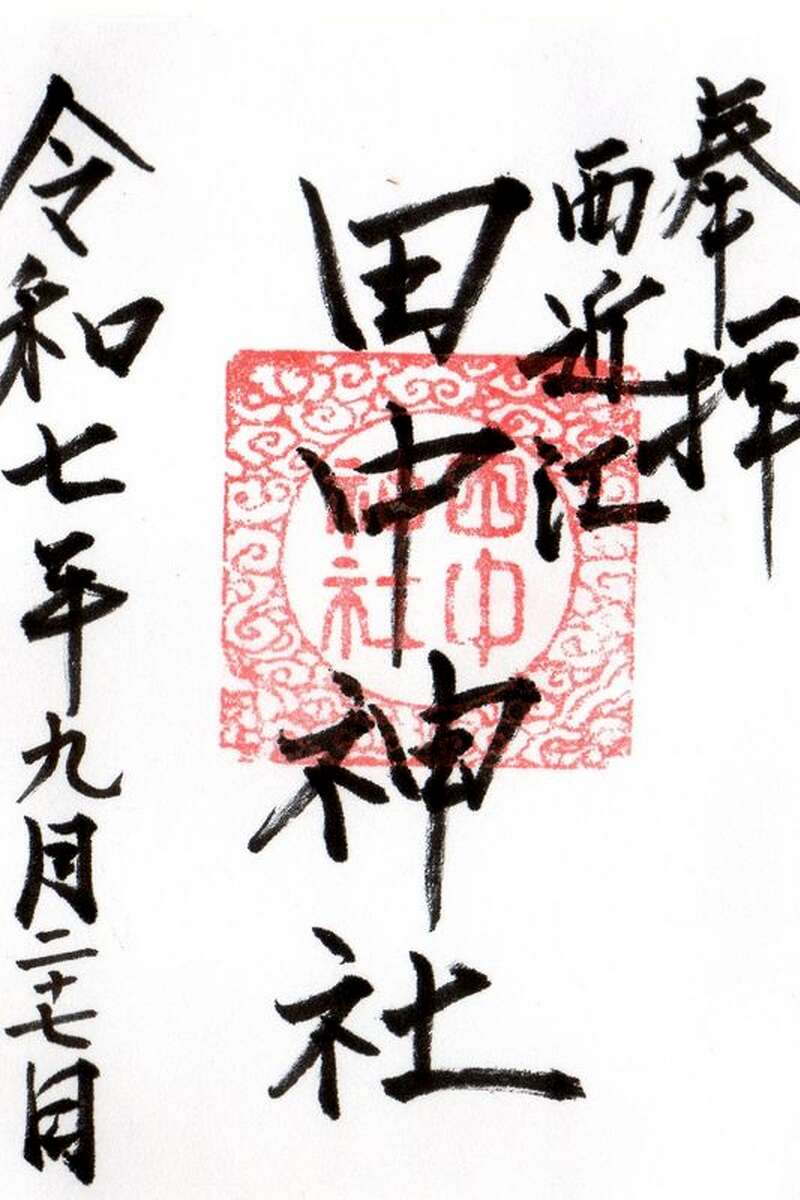 奉拝
西近江
田中神社
田中
神社
令和七年九月二十七日